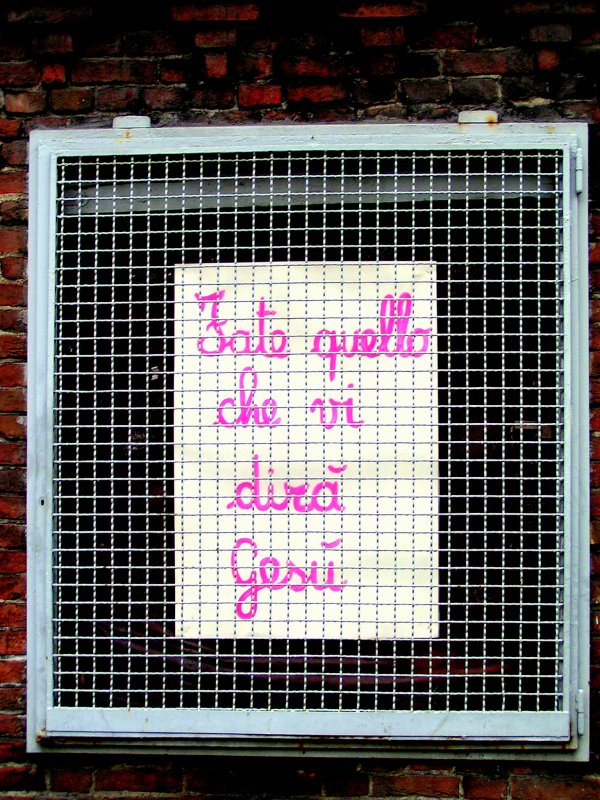 Fate quello
che vi
dirà
Gesù